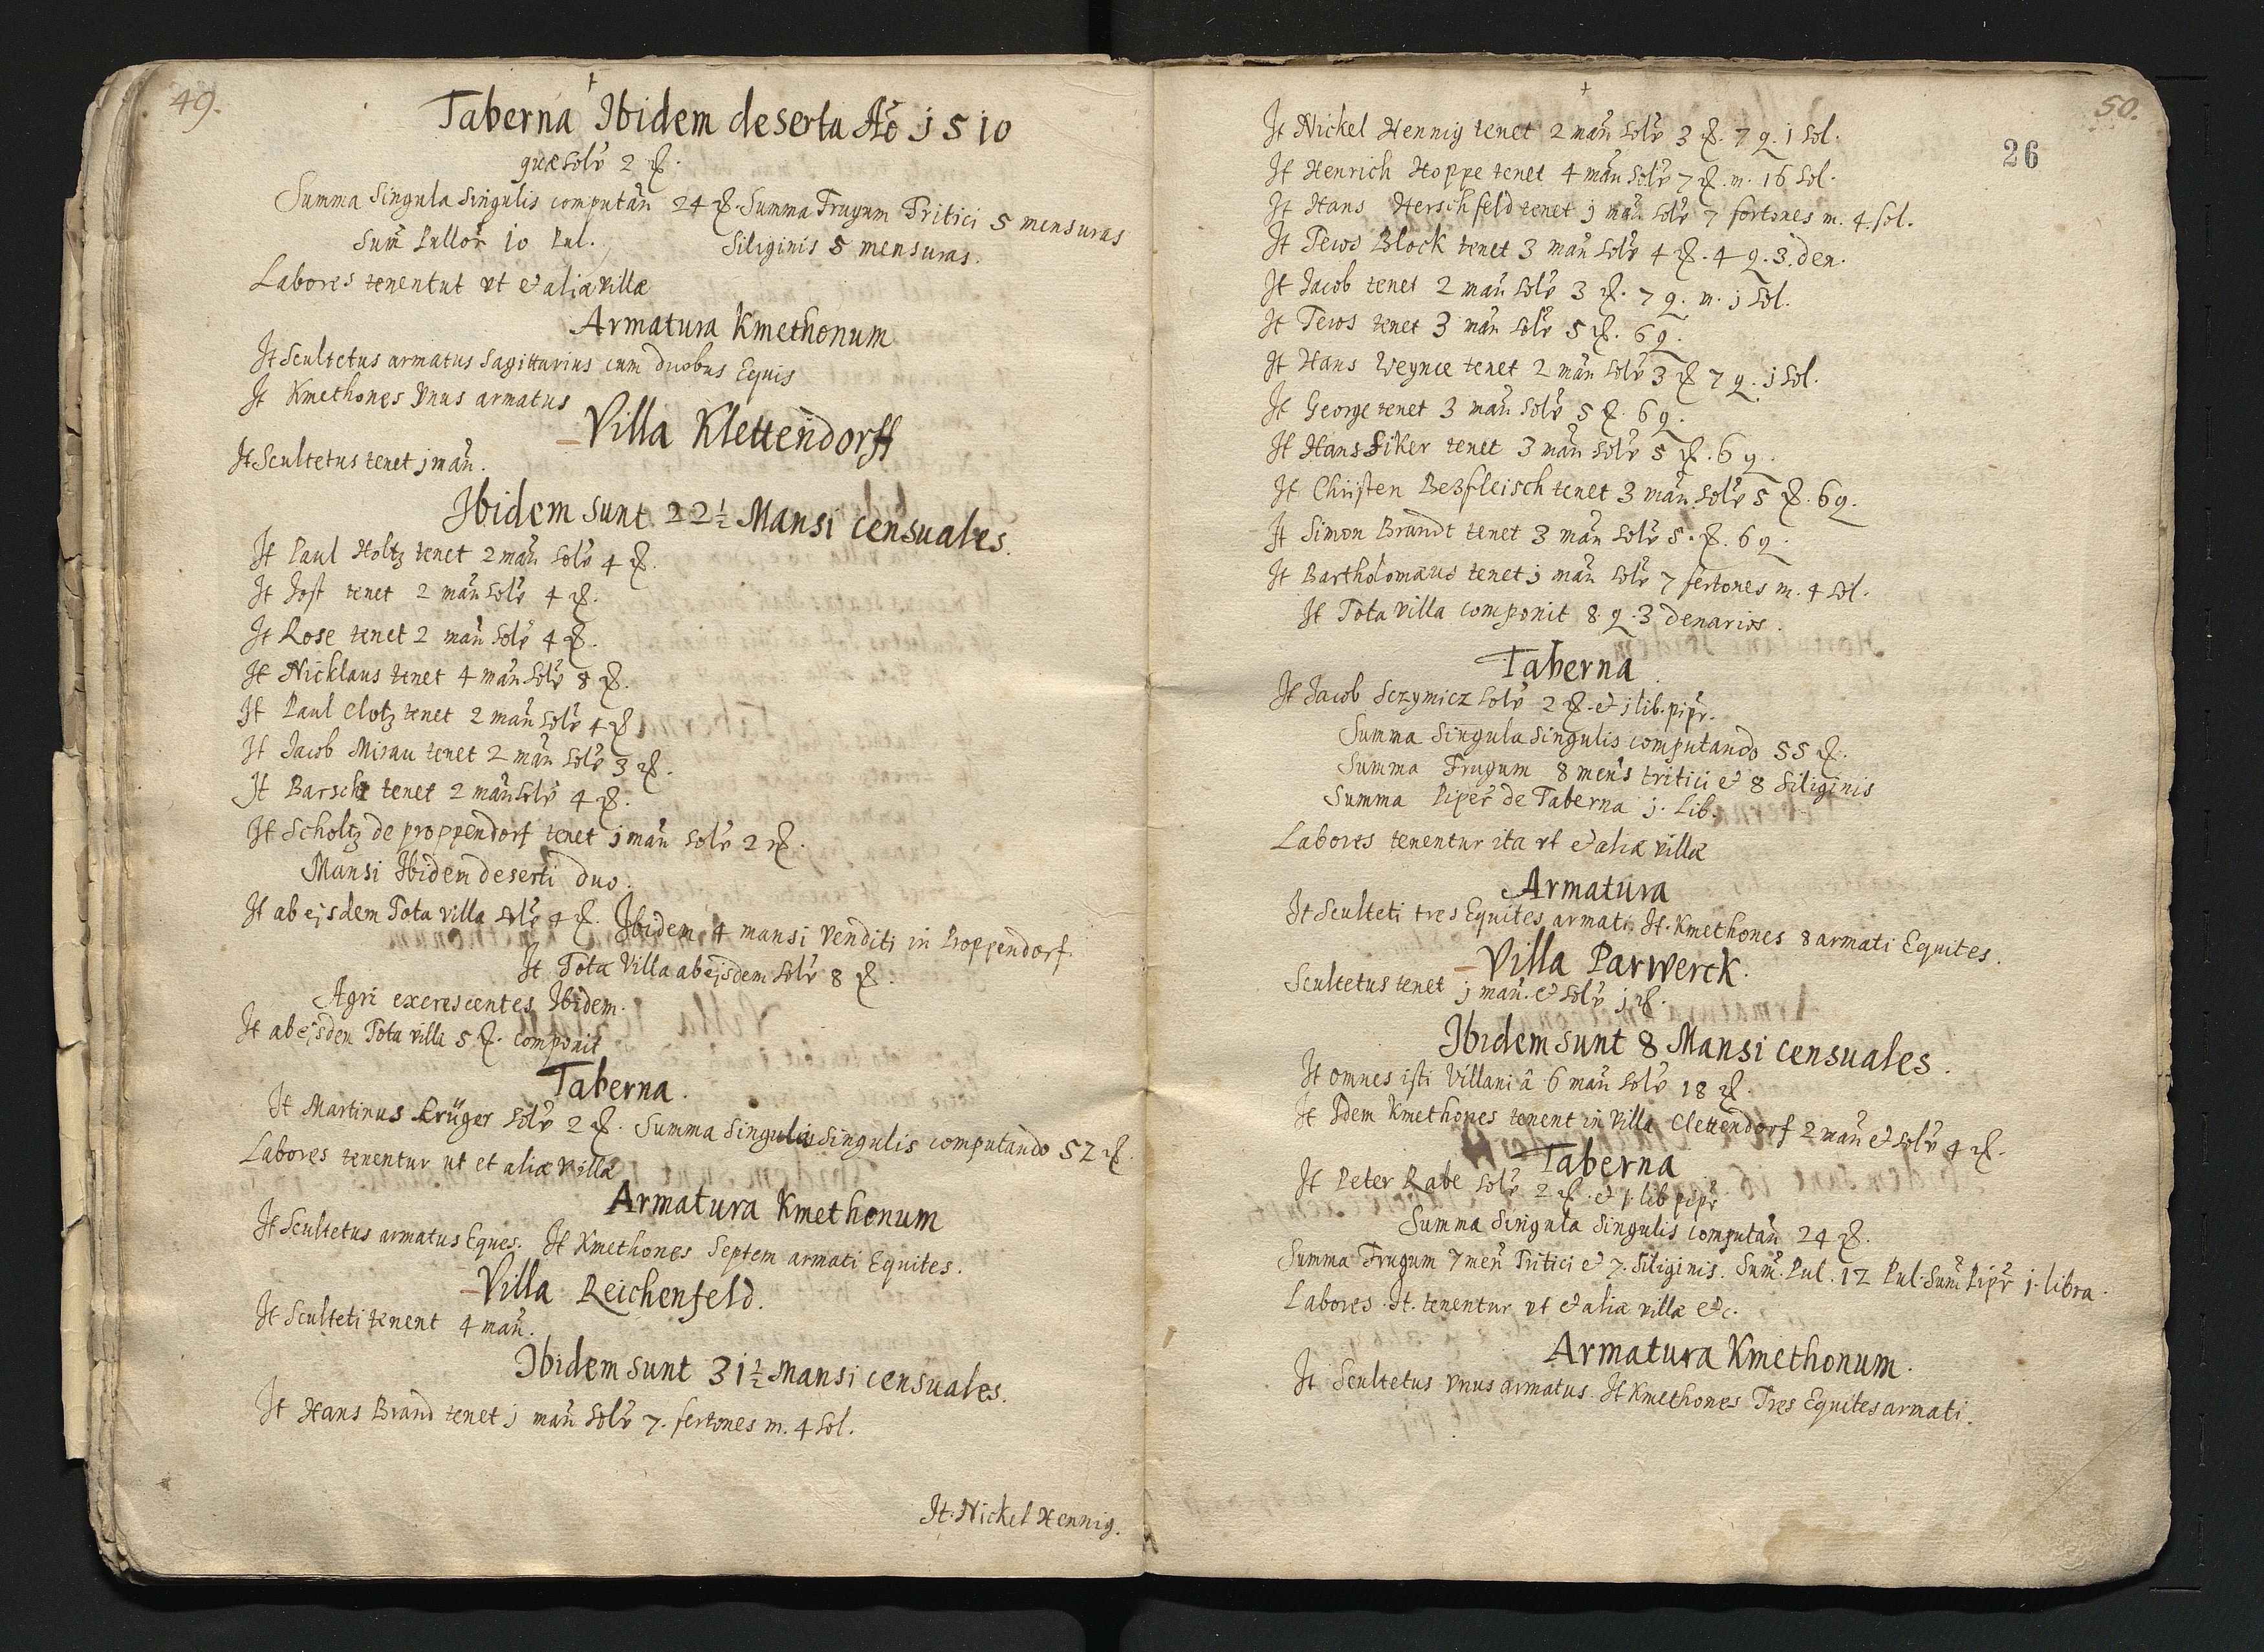 49.
Taberna Ibidem deserta Aõ j510
quæ solv̄ 2 ₰.
Summa Singula Singulis computañ 24 ₰. Summa Frugum Tritici 5 mensuras
Sum̄ Pullor̄ 10 Pul. Siliginis 5 mensuras.
Labores tenentut vt et alia villæ
Armatura Kmethonum
It Scultetus armatus Sagittarius cum duobus Equis
It Kmethones Vnus armatus
Villa Klettendorff
It Scultetus tenet j mañ.
Ibidem sunt 22½ Mansi censuales.
It Paul Holtz tenet 2 mañ solv̄ 4 ₰.
It Jost tenet 2 mañ solv̄ 4 ₰.
It Rose tenet 2 mañ solv̄ 4 ₰.
It Nicklaus tenet 4 mañ solv̄ 8 ₰.
It Paul Clotz tenet 2 mañ solv̄ 4 ₰
It Jacob Mirau tenet 2 mañ solv̄ 3 ₰.
It Barsch tenet 2 mañ solv̄ 4 ₰.
It Scholtz de proppendorf tenet j mañ solv̄ 2 ₰.
Mansi Ibidem deserti duo.
It ab ejsdem Tota villa solv̄ 4 ₰. Ibidem 4 mansi venditi in Proppendorf.
It Tota Villa ab ejsdem solv̄ 8 ₰.
Agri excrescentes Ibidem.
It ab ejsdem Tota villa 5 ₰. componit
Taberna.
It Martinus Krüger solv̄ 2 ₰. Summa Singula Singulis computando 52 ₰.
Labores tenentur ut et aliæ villæ
Armatura Kmethonum
It Scultetus armatus Eques. It Kmethones Septem armati Equites.
Villa Reichenfeld.
It Sculteti tenent 4 mañ.
Ibidem sunt 31½ Mansi censuales.
It Hans Brand tenet j mañ solv̄ 7. fertones m. 4 sol.
It. Nickel Hennig.
50.
26
It Nickel Hennig tenet 2 mañ solv̄ 3 ₰. 7 q. j sol.
It Henrich Hoppe tenet 4 mañ solv̄ 7 ₰. m. 16 sol.
It Hans Herschfeld tenet j mañ solv̄ 7 fertones m. 4. sol.
It Tews Block tenet 3 mañ solv̄ 4 ₰. 4 q. 3. den.
It Jacob tenet 2 mañ solv̄ 3 ₰. 7 q. m. j sol.
It Tews tenet 3 mañ solv̄ 5 ₰. 6 q.
It Hans Weynce tenet 2 mañ solv̄ 3 ₰ 7 q. j sol.
It George tenet 3 mañ solv̄ 5 ₰. 6 q.
It Hans Fiker tenet 3 mañ solv̄ 5 ₰. 6 q.
It Christen Beßfleisch tenet 3 mañ solv̄ 5 ₰. 6 q.
It Simon Brandt tenet 3 mañ solv̄ 5. ₰. 6 q.
It Bartholomæus tenet j mañ solv̄ 7 fertones m. 4 sol.
It Tota villa componit 8. q. 3 denarios.
Taberna.
It Jacob Sczymicz solv̄ 2 ₰. et j lib. pip̄r.
Summa Singula Singulis computando 55 ₰.
Summa Frugum 8 mens̄ tritici et 8 Siliginis
Summa Piper̄ de Taberna j. Lib.
Labores tenentur ita vt et aliæ villæ
Armatura
It Sculteti tres Equites armati. It. Kmethones 8 armati Equites.
Villa Parwerck.
Scultetus tenet j mañ. et solv̄ j ₰.
Ibidem sunt 8 Mansi censuales.
It omnes isti Villani â 6 mañ solv̄ 18 ₰.
It Idem Kmethones tenent in Villa Clettendorf 2 mañ et solv̄ 4 ₰.
Taberna
It Peter Rabe solv̄ 2 ₰. et j. lib pip̄r
Summa Singula Singulis computañ 24 ₰.
Summa Frugum 7 meñ Tritici et 7. Siliginis. Sum̄. Pul. 12 Pul. Sum̄ Pip̄r j. libra.
Labores It. tenentur vt et aliæ villæ etc.
Armatura Kmethonum.
It Scultetus vnus armatus. It Kmethones Tres Equites armati.